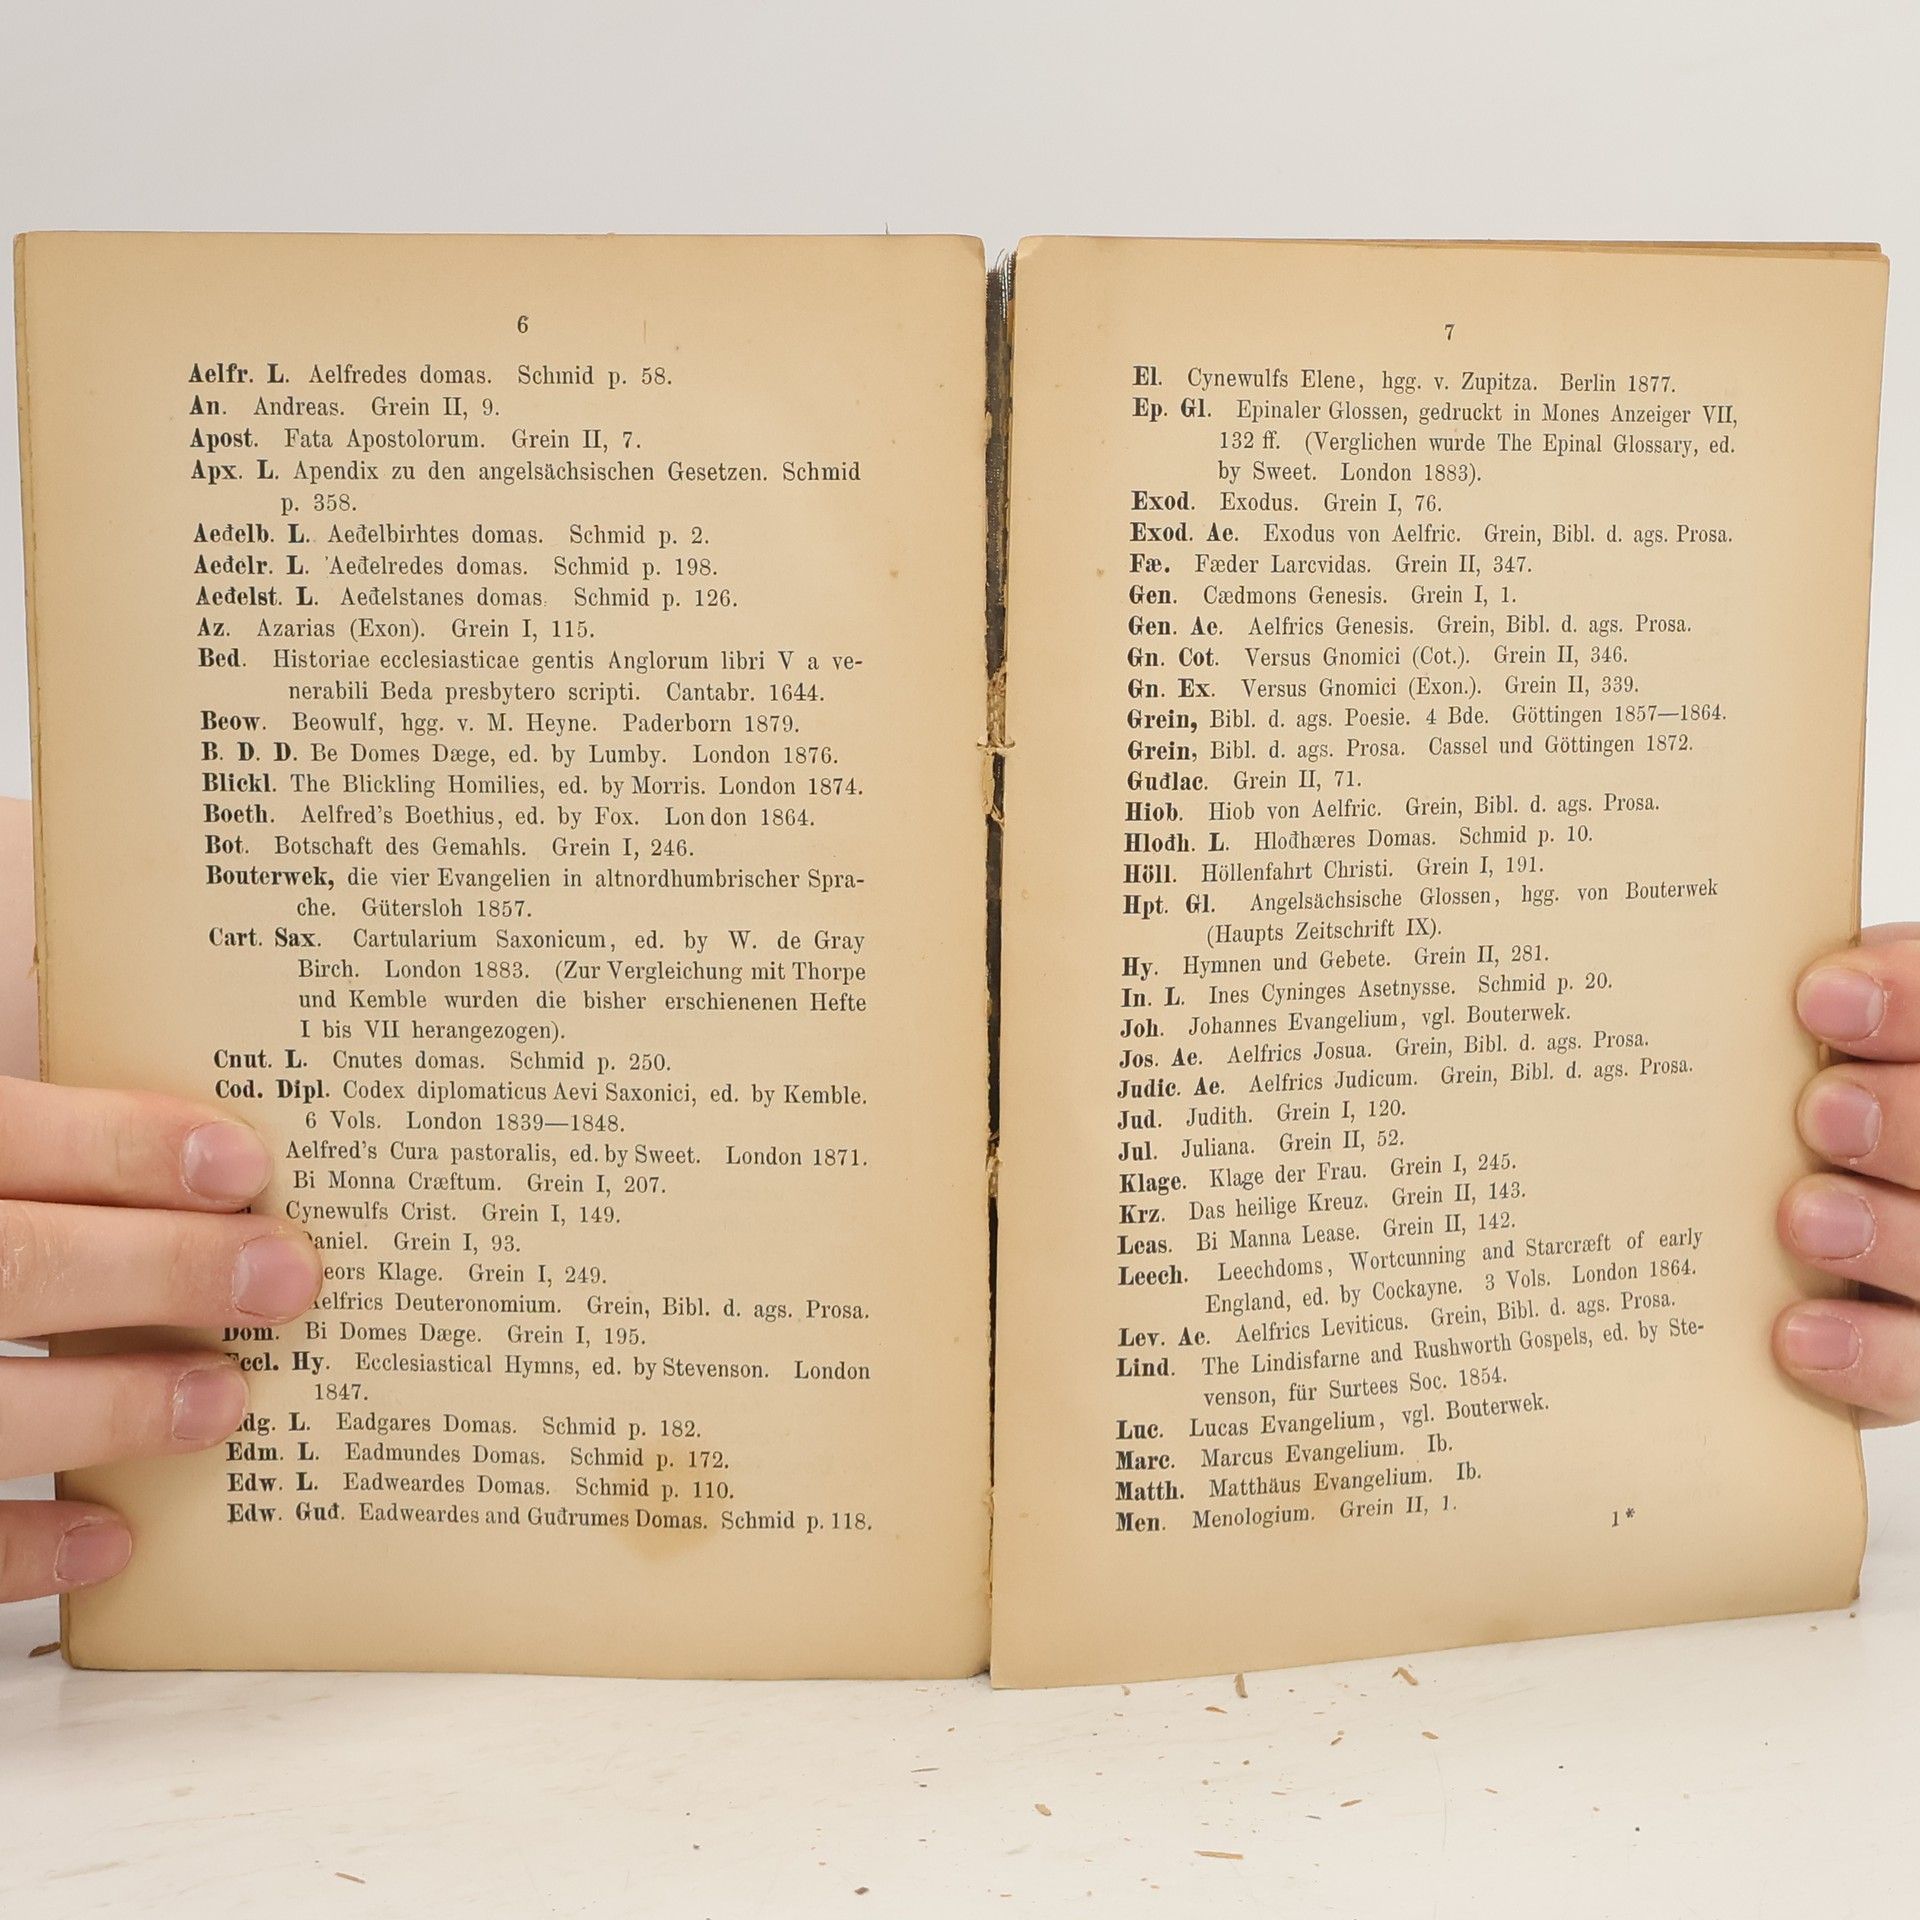 6
Aelfr. L. Aelfredes domas. Schmid p. 58.
An. Andreas. Grein II, 9.
Apost. Fata Apostolorum. Grein II, 7.
Apx. L. Apendix zu den angelsächsischen Gesetzen. Schmid
p. 358.
Aeđelb. L. Aeđelbirhtes domas. Schmid p. 2.
Aeđelr. L. Aeđelredes domas. Schmid p. 198.
Aeđelst. L. Aeđelstanes domas. Schmid p. 126.
Az. Azarias (Exon). Grein I, 115.
Bed. Historiae ecclesiasticae gentis Anglorum libri V a ve-
nerabili Beda presbytero scripti. Cantabr. 1644.
Beow. Beowulf, hgg. v. M. Heyne. Paderborn 1879.
B. D. D. Be Domes Dæge, ed. by Lumby. London 1876.
Blickl. The Blickling Homilies, ed. by Morris. London 1874.
Boeth. Aelfred's Boethius, ed. by Fox. London 1864.
Bot. Botschaft des Gemahls. Grein I, 246.
Bouterwek, die vier Evangelien in altnordhumbrischer Spra-
che. Gütersloh 1857.
Cart. Sax. Cartularium Saxonicum, ed. by W. de Gray
Birch. London 1883. (Zur Vergleichung mit Thorpe
und Kemble wurden die bisher erschienenen Hefte
I bis VII herangezogen).
Cnut. L. Cnutes domas. Schmid p. 250.
Cod. Dipl. Codex diplomaticus Aevi Saxonici, ed. by Kemble.
6 Vols. London 1839—1848.
Aelfred's Cura pastoralis, ed. by Sweet. London 1871.
Bi Monna Cræftum. Grein I, 207.
Cynewulfs Crist. Grein I, 149.
Daniel. Grein I, 93.
eors Klage. Grein I, 249.
Aelfrics Deuteronomium. Grein, Bibl. d. ags. Prosa.
Dom. Bi Domes Dæge. Grein I, 195.
Eccl. Hy. Ecclesiastical Hymns, ed. by Stevenson. London
1847.
Edg. L. Eadgares Domas. Schmid p. 182.
Edm. L. Eadmundes Domas. Schmid p. 172.
Edw. L. Eadweardes Domas. Schmid p. 110.
Edw. Guđ. Eadweardes and Guđrumes Domas. Schmid p. 118.
7
El. Cynewulfs Elene, hgg. v. Zupitza. Berlin 1877.
Ep. Gl. Epinaler Glossen, gedruckt in Mones Anzeiger VII,
132 ff. (Verglichen wurde The Epinal Glossary, ed.
by Sweet. London 1883).
Exod. Exodus. Grein I, 76.
Exod. Ae. Exodus von Aelfric. Grein, Bibl. d. ags. Prosa.
Fæ. Fæder Larcvidas. Grein II, 347.
Gen. Cædmons Genesis. Grein I, 1.
Gen. Ae. Aelfrics Genesis. Grein, Bibl. d. ags. Prosa.
Gn. Cot. Versus Gnomici (Cot.). Grein II, 346.
Gn. Ex. Versus Gnomici (Exon.). Grein II, 339.
Grein, Bibl. d. ags. Poesie. 4 Bde. Göttingen 1857—1864.
Grein, Bibl. d. ags. Prosa. Cassel und Göttingen 1872.
Guđlac. Grein II, 71.
Hiob. Hiob von Aelfric. Grein, Bibl. d. ags. Prosa.
Hlođh. L. Hlođhæres Domas. Schmid p. 10.
Höll. Höllenfahrt Christi. Grein I, 191.
Hpt. Gl. Angelsächsische Glossen, hgg. von Bouterwek
(Haupts Zeitschrift IX).
Hy. Hymnen und Gebete. Grein II, 281.
In. L. Ines Cyninges Asetnysse. Schmid p. 20.
Joh. Johannes Evangelium, vgl. Bouterwek.
Jos. Ae. Aelfrics Josua. Grein, Bibl. d. ags. Prosa.
Judic. Ae. Aelfrics Judicum. Grein, Bibl. d. ags. Prosa.
Jud. Judith. Grein I, 120.
Jul. Juliana. Grein II, 52.
Klage. Klage der Frau. Grein I, 245.
Krz. Das heilige Kreuz. Grein II, 143.
Leas. Bi Manna Lease. Grein II, 142.
Leech. Leechdoms, Wortcunning and Starcræft of early
England, ed. by Cockayne. 3 Vols. London 1864.
Lev. Ae. Aelfrics Leviticus. Grein, Bibl. d. ags. Prosa.
Lind. The Lindisfarne and Rushworth Gospels, ed. by Ste-
venson, für Surtees Soc. 1854.
Luc. Lucas Evangelium, vgl. Bouterwek.
Marc. Marcus Evangelium. Ib.
Matth. Matthäus Evangelium. Ib.
Men. Menologium. Grein II, 1.
1*